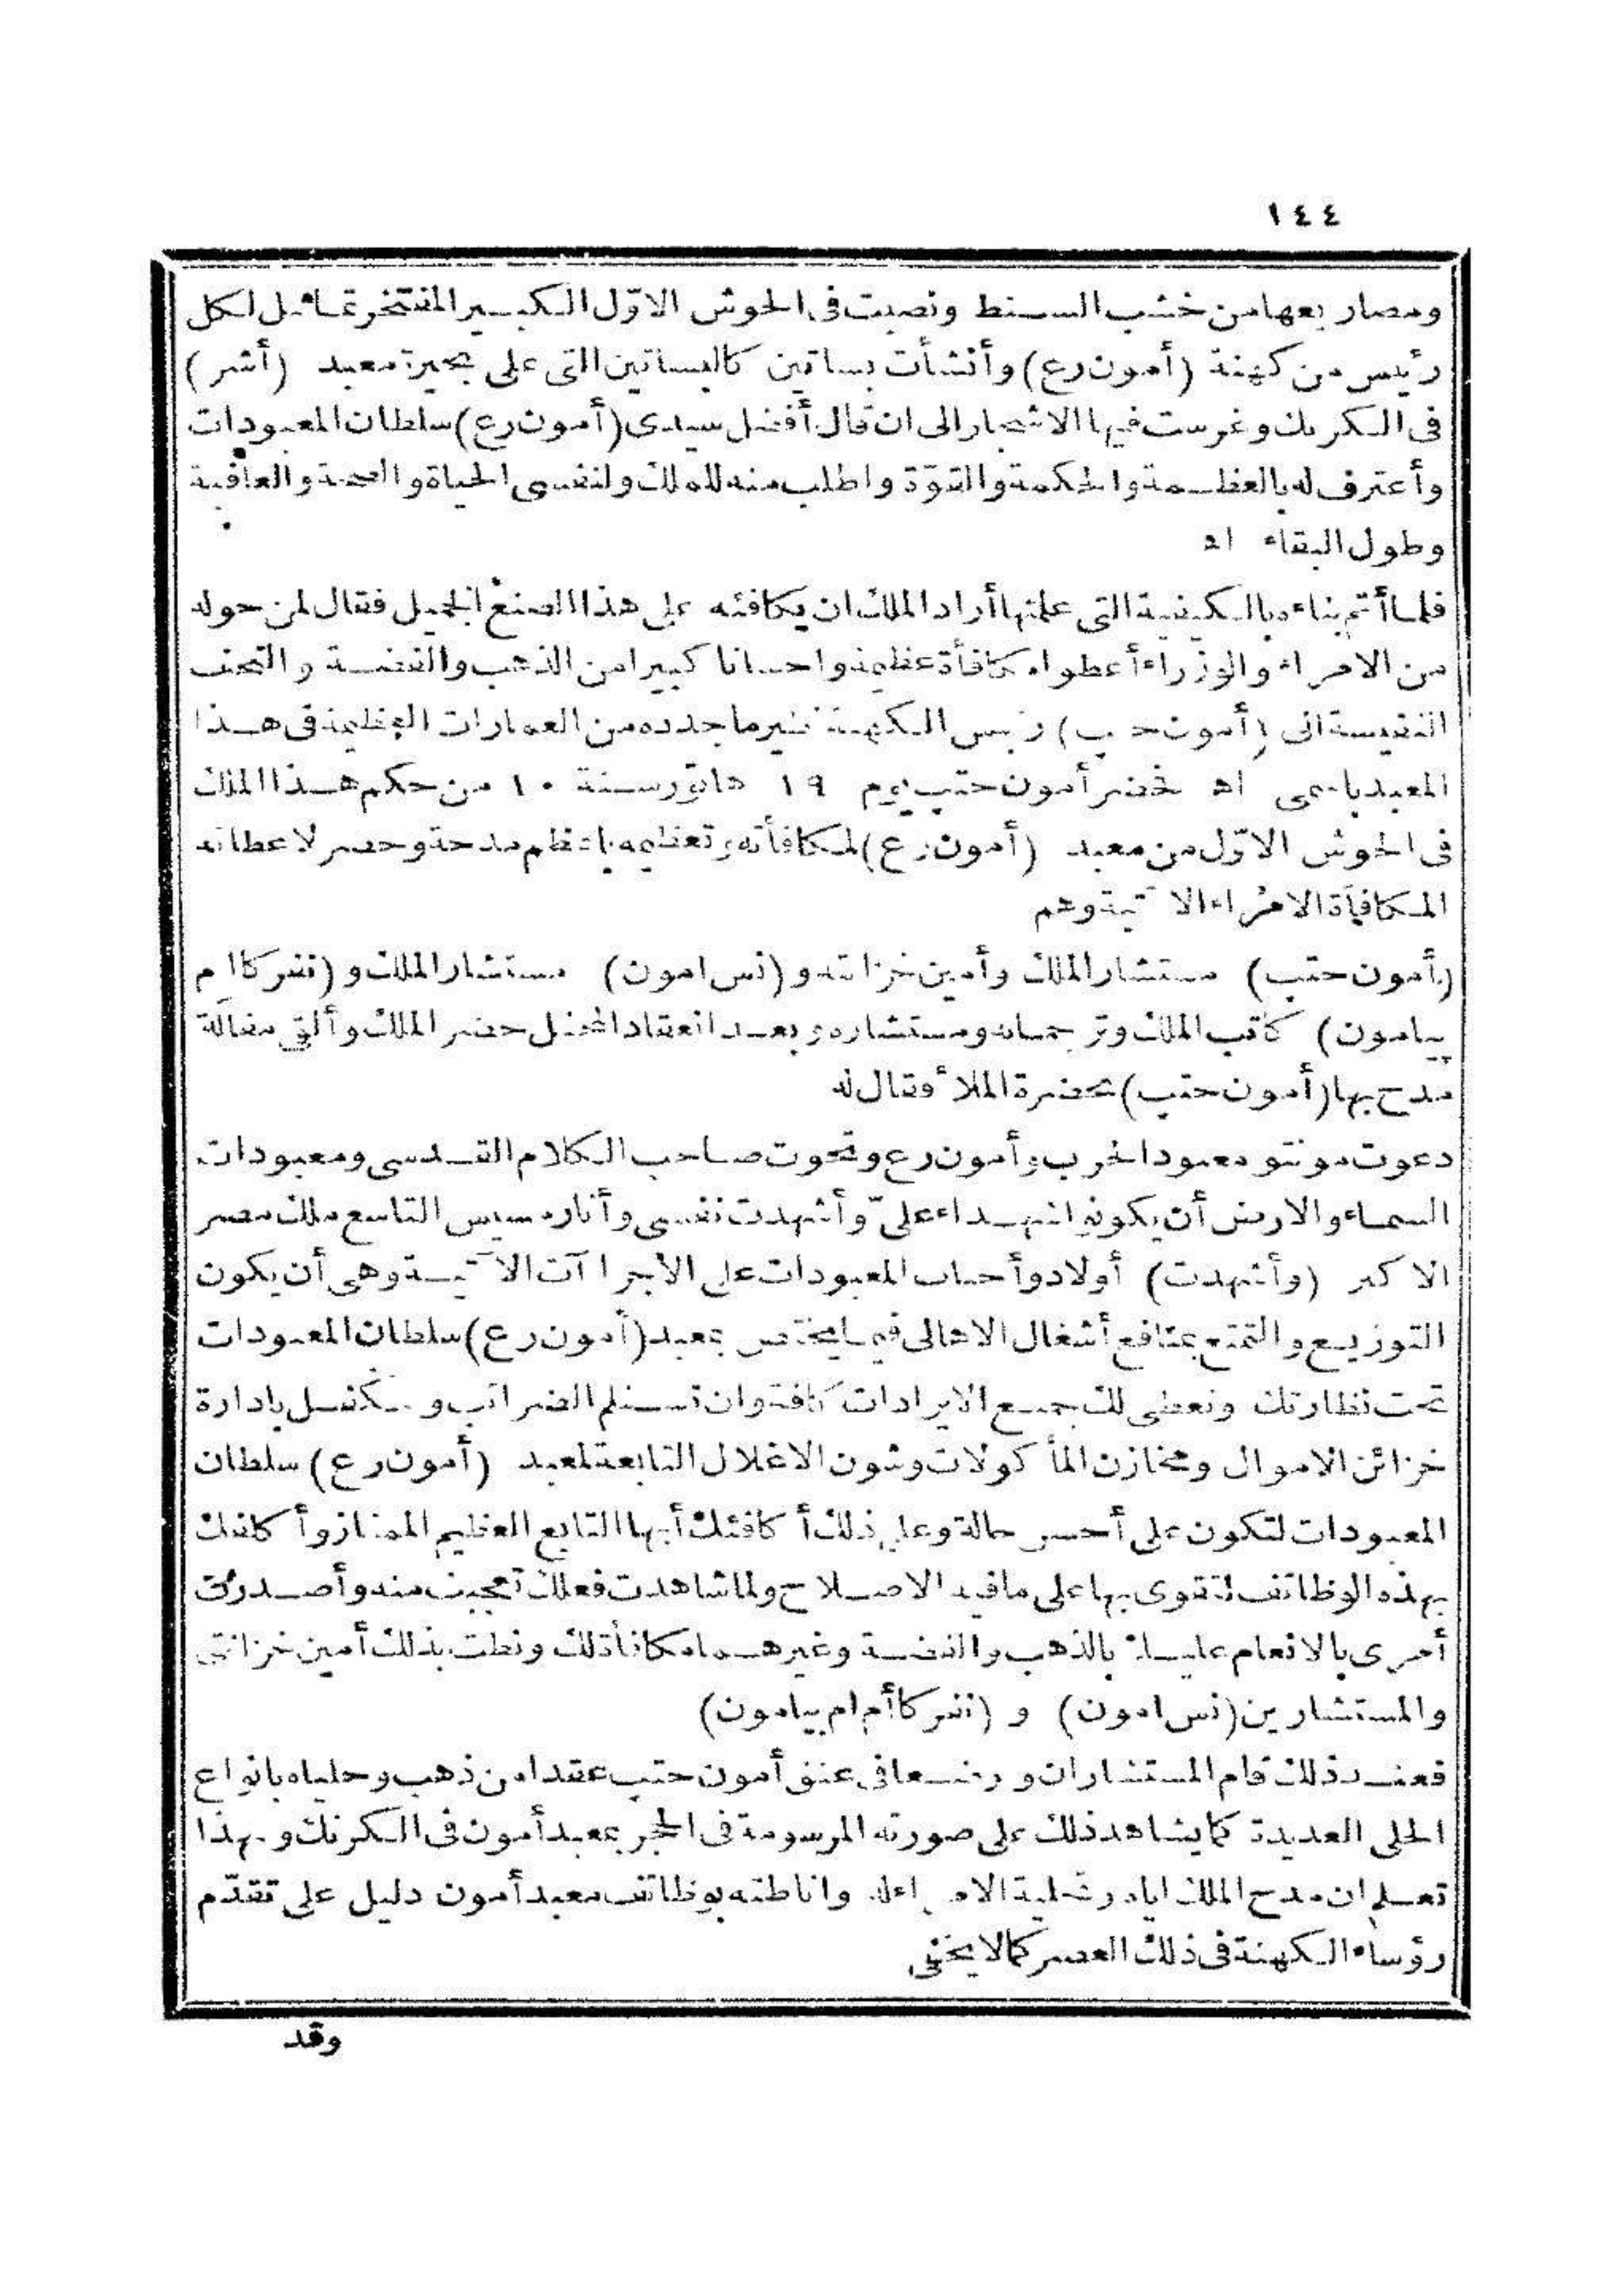 ١٤٤
ومصاريعها من خشب السنط ونصبت فى الحوش الاوّل الكبير المفتخر تماثيل لكل
رئيس من كهنة (أمون رع) وأنشأت بساتين كالبساتين التى على بحيرة معبد (أشر)
فى الكرنك وغرست فيها الاشجار الى ان قال أفضل سيدى (أمون رع) سلطان المعبودات
وأعترف له بالعظمة والحكمة والقوّة واطلب منه للملك ولنفسى الحياة والصحة والعافية
وطول البقاء اه
فلما أتم بناءه بالكيفية التى علمتها أراد الملك ان يكافئه على هذا الصنع الجميل فقال لمن حوله
من الامراء والوزراء أعطوا مكافأة عظيمة واحسانا كبيرا من الذهب والفضة والتحف
النفيسة الى (أمون حتب) رئيس الكهنة نظير ما جدده من العمارات العظيمة فى هذا
المعبد باسمى اه فحضر أمون حتب يوم ١٩ هاتور سنة ١٠ من حكم هذا الملك
فى الحوش الاوّل من معبد (أمون رع) لمكافأته وتعظيمه باعظم مدحة وحضر لاعطائه
المكافأة الامراء الآتية وهم
(أمون حتب) مستشار الملك وأمين خزانته و(نس امون) مستشار الملك و(نفر كاام
بيامون) كاتب الملك وترجمانه ومستشاره وبعد انعقاد المحفل حضر الملك وألقى مقالة
مدح بها (أمون حتب) بحضرة الملأ فقال له
دعوت مونتو معبود الحرب وأمون رع وتحوت صاحب الكلام القدسى ومعبودات
السماء والارض أن يكونوا شهداء علىّ وأشهدت نفسى وأنا رمسيس التاسع ملك مصر
الاكبر (وأشهدت) أولاد وأحباب المعبودات على الاجراآت الآتية وهى أن يكون
التوزيع والتمتع بمنافع أشغال الاهالى فيما يختص بمعبد (أمون رع) سلطان المعبودات
تحت نظارتك ونعطى لك جميع الايرادات كافة وان تستلم الضرائب وتتكفل بادارة
خزائن الاموال ومخازن المأكولات وشون الاغلال التابعة لمعبد (أمون رع) سلطان
المعبودات لتكون على أحسن حالة وعلى ذلك أكافئك أيها التابع العظيم الممتاز وأكافئك
بهذه الوظائف لتقوى بها على مافيه الاصلاح ولما شاهدت فعلك تعجبت منه وأصدرت
أمرى بالانعام عليك بالذهب والفضة وغيرهما مكافأة لك ونطت بذلك أمين خزانتى
والمستشارين (نس امون) و (نفر كاأم ام بيامون)
فعند ذلك قام المستشاران ووضعا فى عنق أمون حتب عقدا من ذهب وحلياه بانواع
الحلى العديدة كما يشاهد ذلك على صورته المرسومة فى الحجر بمعبد أمون فى الكرنك وبهذا
تعلم ان مدح الملك اياه وتحلية الامراء له واناطته بوظائف معبد أمون دليل على تقدّم
رؤساء الكهنة فى ذلك العصر كما لا يخفى
وقد